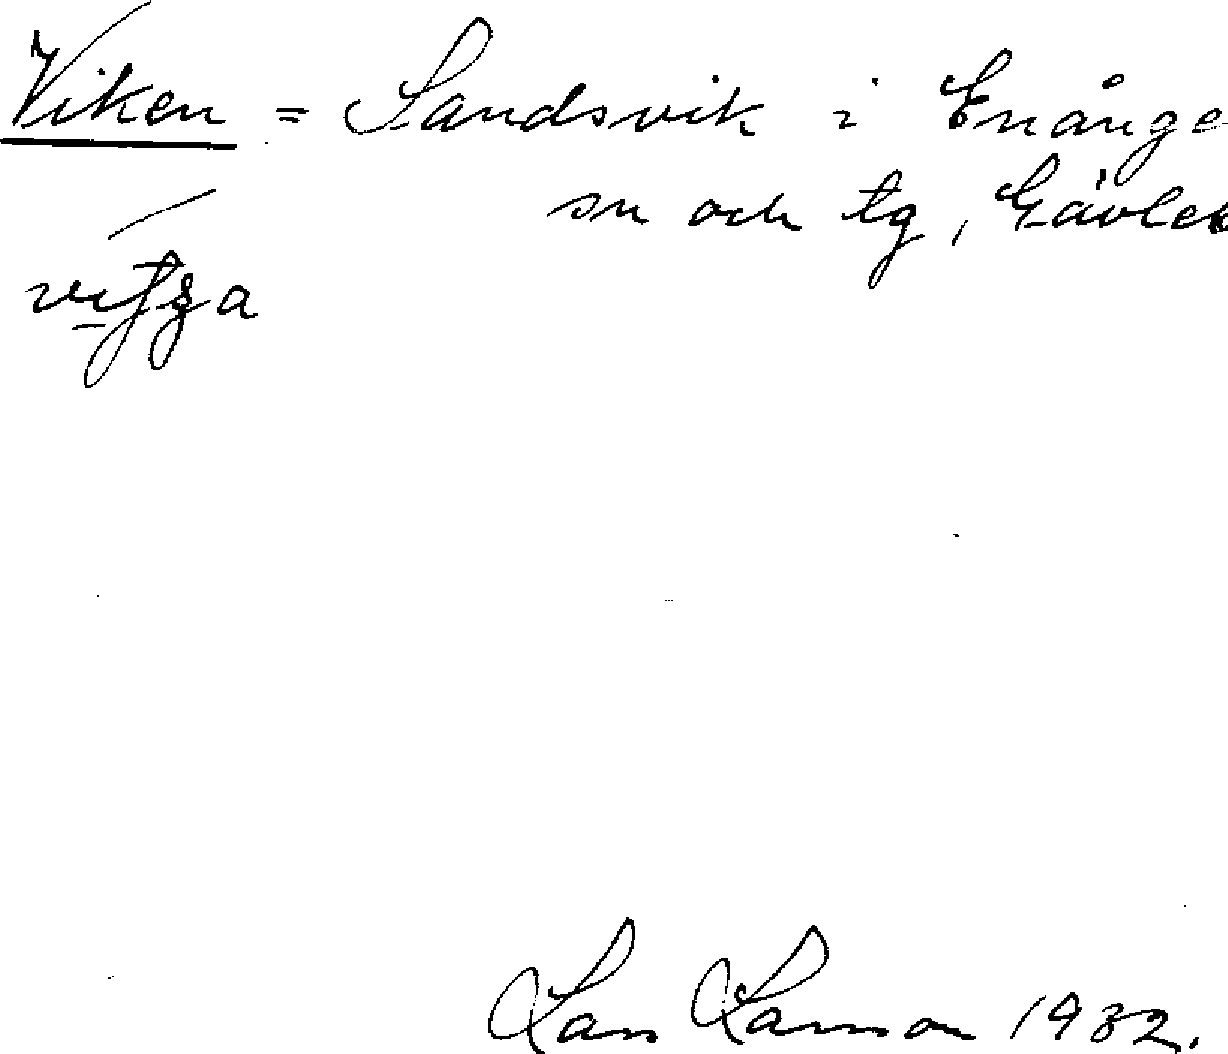 Viken = Sandsvik i Enånge
sn och tg, Gävleb
Lars Larsson 1932.